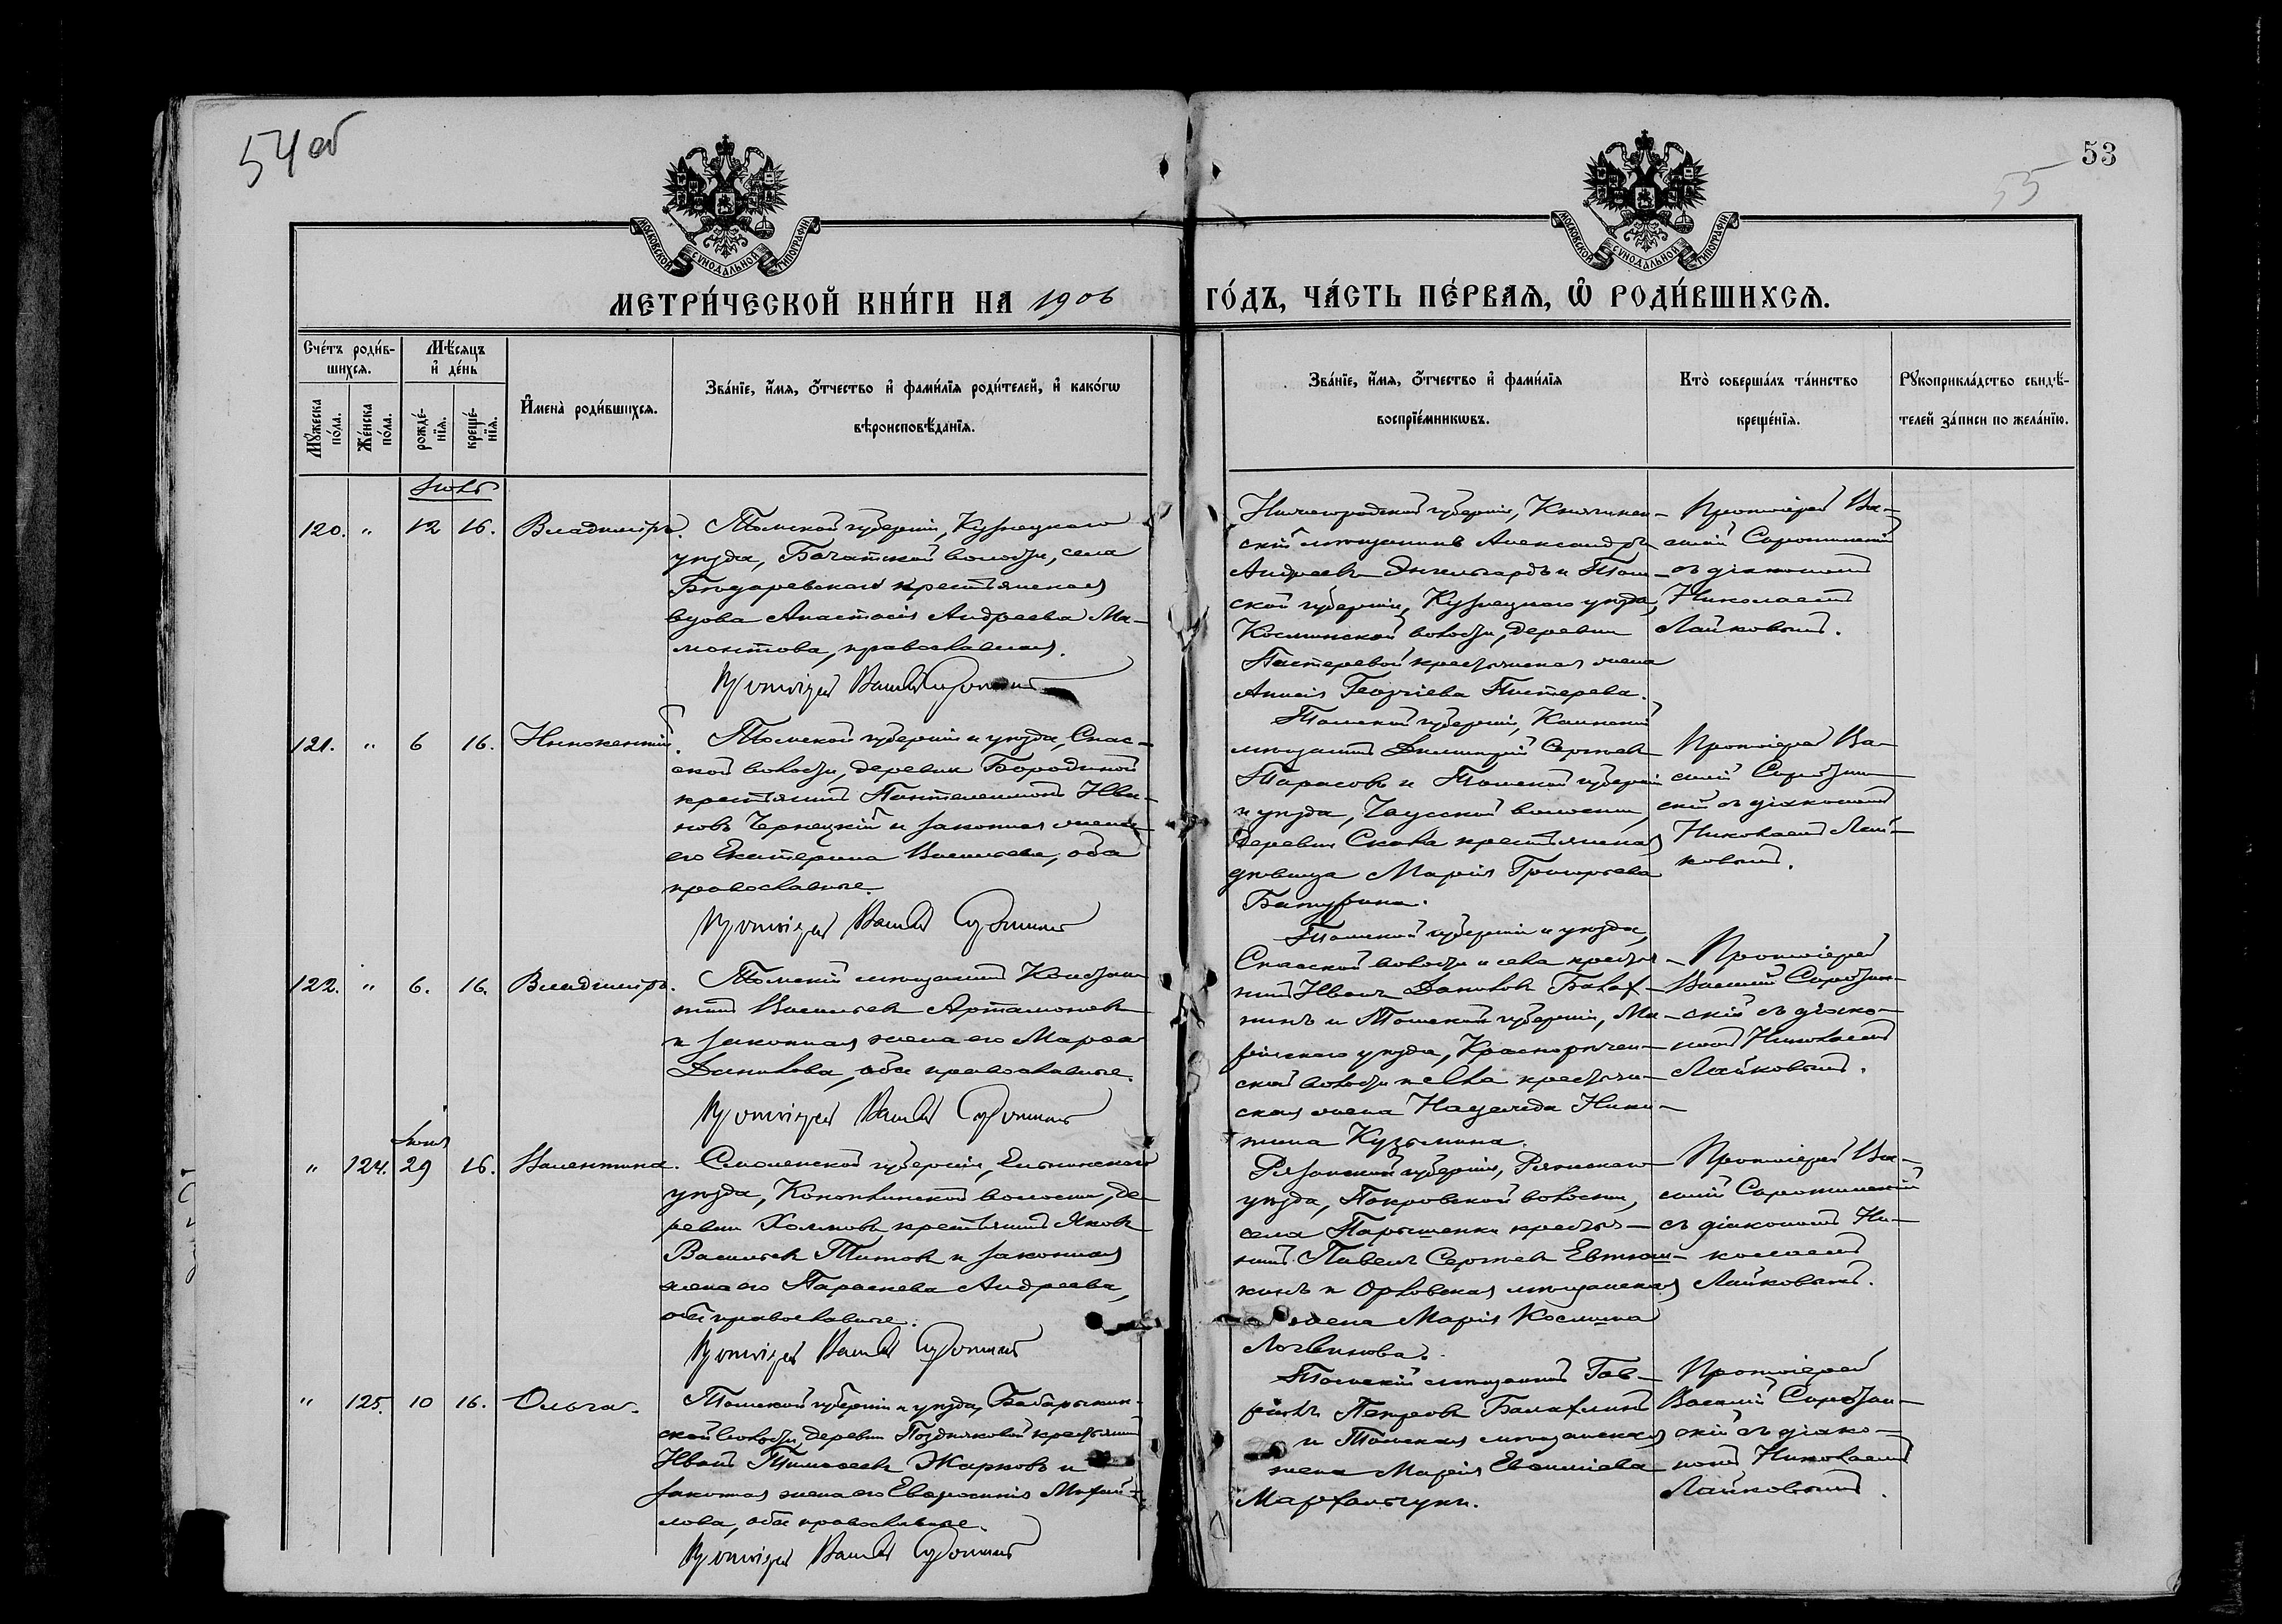 54 об
53
55
МОСКОВСКОЙ СУНОДАЛЬНОЙ ТИПОГРАФІИ
МОСКОВСКОЙ СУНОДАЛЬНОЙ ТИПОГРАФІИ
МЕТРИ́ЧЕСКОЙ КНИ́ГИ НА 1906 ГО́ДЪ, ЧА́СТЬ ПЕ́РВАЯ, Ѽ РОДИ́ВШИХСЯ.
Сче́тъ роди́в-
шихся.
Мѣ́сяцъ
и҆ де́нь
Мꙋ́жеска
по́ла.
Же́нска
по́ла.
рожде́-
нїя.
креще́-
нїя.
И҆мена̀ роди́вшихся.
Зва́нїе, и҆́мя, ѻ҆́тчество и҆ фами́лїя роди́телей, и҆ како́гѡ
вѣроисповѣ́данїя.
Зва́нїе, и҆́мя, ѻ҆́тчество и҆ фами́лїя
воспрїе́мникѡвъ.
Кто̀ соверша́лъ та́инство
креще́нїя.
Рꙋкоприкла́дство свидѣ́-
телей за́писи по жела́нїю.
120. " 12 16. Владиміръ.
Томской губерніи, Кузнецкаго
уѣзда, Бачатской волости, села
крестьянская
вдова Анастасія Андреева Ма-
монтова, православная.
Протоіерей Василій
Нижегородской губерніи, Княгинин-
скій мѣщанинъ Александръ
Андреевъ Энгельгардъ и Том-
ской губерніи, Кузнецкаго уѣзда,
волости, деревни
Пестеревой крестьянская жена
Анисія Георгіева Пестерева.
Протоіерей Ва-
силій
съ діакономъ
Николаемъ
Лайковымъ.
121. " 6 16. Иннокентій.
Томской губерніи и уѣзда, Спас-
ской волости, деревни Бородиной
крестьянинъ Пантелеимонъ Ива-
новъ Чернецкій и законная жена
его Екатерина Васильева, оба
православные.
Протоіерей Василій
Томской губерніи, Каинскій
мѣщанинъ Димитрій Сергѣевъ
Тарасовъ и Томской губерніи
и уѣзда, Чаусской волости,
деревни Скала крестьянская
дѣвица Марія Григорьева
Батурина.
Протоіерей Ва-
силій
скій съ діакономъ
Николаемъ Лай-
ковымъ.
122. " 6. 16. Владиміръ.
Томскій мѣщанинъ Констан-
тинъ Васильевъ Артамоновъ
и законная жена его Марѳа
Данилова, оба православные.
Протоіерей Василій
Томской губерніи и уѣзда,
Спасской волости и села крестья-
нинъ Иванъ Даниловъ
и Томской губерніи, Ма-
ріинскаго уѣзда, Краснорѣчен-
ской волости и села крестьян-
ская жена Надежда Ники-
тина Кузьмина.
Протоіерей
Василій
скій съ діако-
номъ Николаемъ
Лайковымъ.
" 124. 29 16. Валентина.
Смоленской губерніи, Ельнинскаго
уѣзда, волости, де-
ревни Холмовъ крестьянинъ Яковъ
Васильевъ Титовъ и законная
жена его Параскева Андреева,
оба православные.
Протоіерей Василій
Рязанской губерніи, Ряжскаго
уѣзда, Покровской волости,
села крестья-
нинъ Павелъ Сергѣевъ Евтюш-
кинъ и Орловская мѣщанская
жена Марія Космина
Логвинова.
Протоіерей Ва-
силій
съ діакономъ Ни-
колаемъ
Лайковымъ.
" 125. 10 16. Ольга.
Томской губерніи и уѣзда, Бабарыкин-
ской волости, деревни Поздняковой крестьянинъ
Иванъ Тимоѳеевъ Жарковъ и
законная жена его Евфросинія Михай-
лова, оба православные.
Протоіерей Василій
Томскій мѣщанинъ Гав-
ріилъ Петровъ
и Томская мѣщанская
жена Марія
Протоіерей
Василій
скій съ діако-
номъ Николаемъ
Лайковымъ.